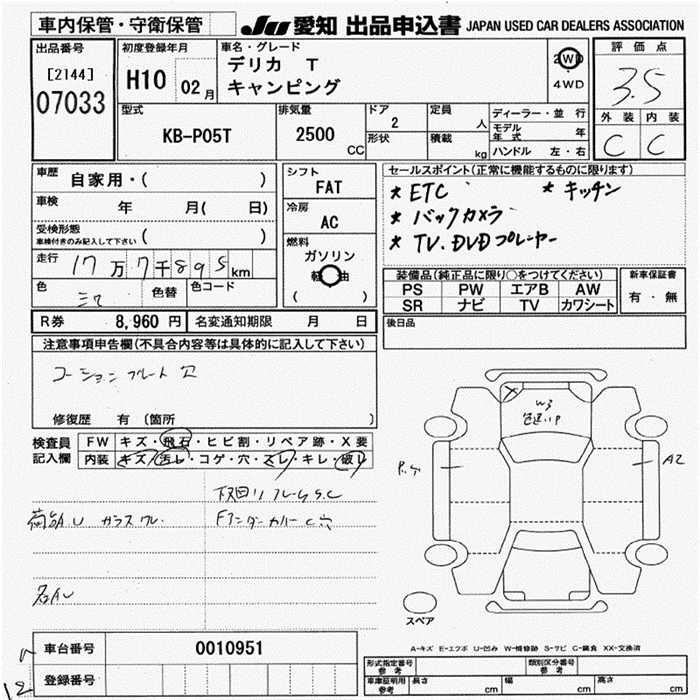 車内保管・守衛保管
JU 愛知 出品申込書 JAPAN USED CAR DEALERS ASSOCIATION
出品番号
[2144]
07033
初度登録年月
H10 02月
車名・グレード
デリカ T
キャンピング
2WD
4WD
評価点
3.5
外装 内装
C C
型式
KB-P05T
排気量
2500 CC
ドア
2
形状
定員
人
積載
kg
ディーラー・並行
モデル年式 年
ハンドル 左・右
車歴
自家用・( )
車検
年 月( 日)
受検形態
車検付きのみ記入して下さい ( )
走行 17万7千895km
色 色替 色コード
シフト
FAT
冷房
AC
燃料
ガソリン
軽油
( )
セールスポイント(正常に機能するものに限ります)
* ETC * キッチン
* バックカメラ
* TV.DVDプレーヤー
装備品(純正品に限り○をつけてください)
PS PW エアB AW
SR ナビ TV カワシート
新車保証書
有・無
R券 8,960円 名変通知期限 月 日
後日品
注意事項申告欄(不具合内容等は具体的に記入して下さい)
コーションプレート欠
修復歴 有 (箇所 )
検査員記入欄
FW キズ・飛石・ヒビ割・リペア跡・X要
内装 キズ・汚レ・コゲ・穴・スレ・キレ・破レ
下回り フレームS.C
FアンダーカバーC穴
W3
色違いP
A2
スペア
A-キズ E-エクボ U-凹み W-補修跡 S-サビ C-腐食 XX-交換済
車台番号 0010951
登録番号
形式指定番号 参考
類別区分番号 参考
車庫証明用 参考 長さ cm 幅 cm 高さ cm